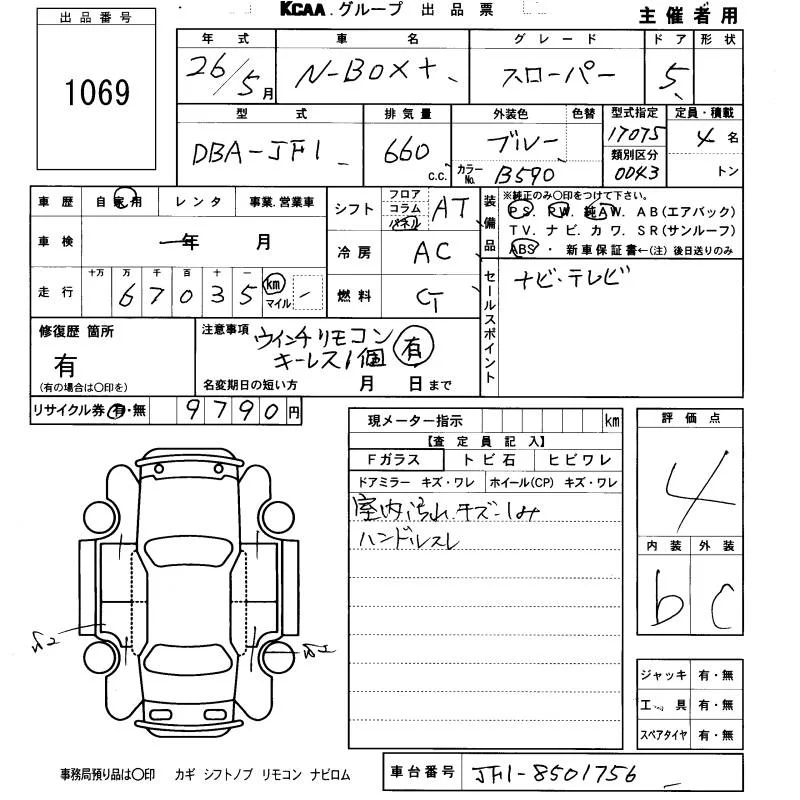 出品番号
1069
KCAA.グループ 出品票
主催者用
年式 車名 グレード ドア 形状
26/5月 N-BOX+ スローパー 5
型式 排気量 外装色 色替 型式指定 定員・積載
DBA-JF1 660 c.c. ブルー 17075 4名
カラーNo. B590 類別区分 0043 トン
車歴 自家用 レンタ 事業.営業車
車検 年 月
走行 十万 万 千 百 十 一
67035 km マイル
シフト フロア コラム パネル AT
冷房 AC
燃料 G
装備品
※純正のみ〇印をつけて下さい。
PS. PW. 純AW. AB(エアバック)
TV. ナビ. カワ. SR(サンルーフ)
ABS ・ 新車保証書←(注) 後日送りのみ
セールスポイント
ナビ・テレビ
修復歴 箇所
有
(有の場合は〇印を)
注意事項
ウインチリモコン 有
キーレス1個
名変期日の短い方 月 日まで
リサイクル券 有・無 9790円
現メーター指示 km
【査定員記入】
Fガラス トビ石 ヒビワレ
ドアミラー キズ・ワレ ホイール(CP) キズ・ワレ
室内汚れ.キズ-しみ
ハンドルスレ
評価点
4
内装 外装
b c
ジャッキ 有・無
工具 有・無
スペアタイヤ 有・無
事務局預り品は〇印 カギ シフトノブ リモコン ナビロム
車台番号 JF1-8501756